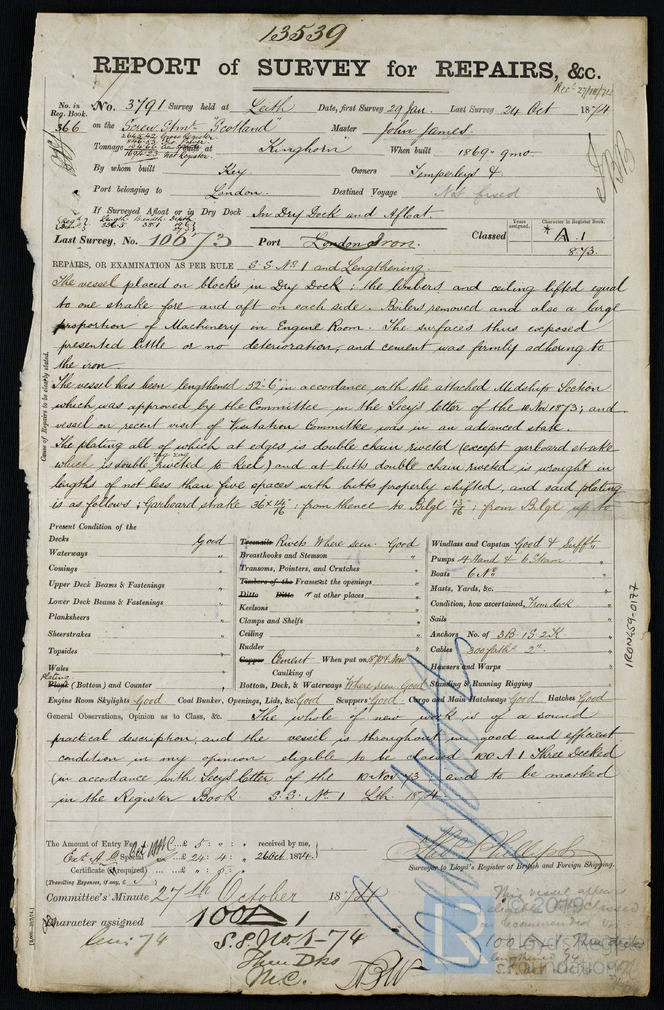 13539
REPORT of SURVEY for REPAIRS, &c.
Rec 27/10/74
No. in Reg. Book. 366
No. 3791 Survey held at Leith Date, first Survey 29 Jan. Last Survey 24 Oct 1874
on the Screw Stmr "Scotland" Master John James.
Tonnage Gross Register Net Register. built at Kinghorn When built 1869 - 9mo.
By whom built Key Owners Temperleys &
Port belonging to London. Destined Voyage Not fixed
If Surveyed Afloat or in Dry Dock In Dry Dock and Afloat.
Length Breadth Depth
Last Survey, No. 106 73 Port London Iron. Classed
Years assigned. Character in Register Book.
* A.1
8.73.
REPAIRS, OR EXAMINATION AS PER RULE S.S. No. 1 and Lengthening.
The vessel placed on blocks in Dry Dock; the limbers and ceiling lifted equal
to one strake fore and aft on each side. Boilers removed and also a large
proportion of Machinery in Engine Room. The surfaces thus exposed
presented little or no deterioration, and cement was firmly adhering to
the iron.
The vessel has been lengthened 52'-6" in accordance with the attached Midship Section
which was approved by the Committee in the Secy's letter of the 10 Nov 1873; and
vessel on recent visit of Visitation Committee was in an advanced state.
The plating all of which at edges is double chain riveted (except garboard strake
which is double zig zag riveted to keel) and at butts double chain riveted is wrought in
lengths of not less than five spaces with butts properly shifted, and said plating
is as follows; Garboard strake 36 x 14/16; from thence to Bilge 13/16; from Bilge up to
Cause of Repairs to be clearly stated.
Present Condition of the
Decks Good
Waterways "
Comings "
Upper Deck Beams & Fastenings "
Lower Deck Beams & Fastenings "
Planksheers "
Sheerstrakes "
Topsides "
Wales "
Plating Plank (Bottom) and Counter "
Treenails Rivets Where seen. Good
Breasthooks and Stemson "
Transoms, Pointers, and Crutches "
Timbers of the Frames at the openings "
Ditto Ditto " at other places "
Keelsons "
Clamps and Shelfs "
Ceiling "
Rudder "
Copper Cement When put on Now
Caulking of
Bottom, Deck, & Waterways Where seen Good
Windlass and Capstan Good & Sufft
Pumps 4 Hand & 6 Steam "
Boats 6 No. "
Masts, Yards, &c. "
Condition, how ascertained From deck
Sails "
Anchors No. of 3B. 1S. 2K "
Cables 300 faths 2" "
Hawsers and Warps "
Standing & Running Rigging "
Engine Room Skylights Good Coal Bunker, Openings, Lids, &c. Good Scuppers Good Cargo and Main Hatchways Good Hatches Good
General Observations, Opinion as to Class, &c. The whole of new work is of a sound
practical description, and the vessel is throughout in good and efficient
condition in my opinion eligible to be classed 100 A 1 Three Decked
(in accordance with Secy's letter of the 10 Nov 73) and to be marked
in the Register Book S.S. No. 1 Lth. 1874
The Amount of Entry Fee £ 5 : " : " received by me,
Special £ 24 : 4 : " 26 Oct. 1874.
Certificate (if required) £ :
(Travelling Expenses, if any, £ )
Surveyor to Lloyd's Register of British and Foreign Shipping.
Committee's Minute 27th October 1874
Character assigned 100A
S.S. No. 1-74
Three Dks
M.C.
This vessel appears
eligible to be classed
as recommended
100A1 Three decks
lengthened 74
S.S. No. 1
IRON459-0177
© 2019
LR
Lloyd's Register
Foundation